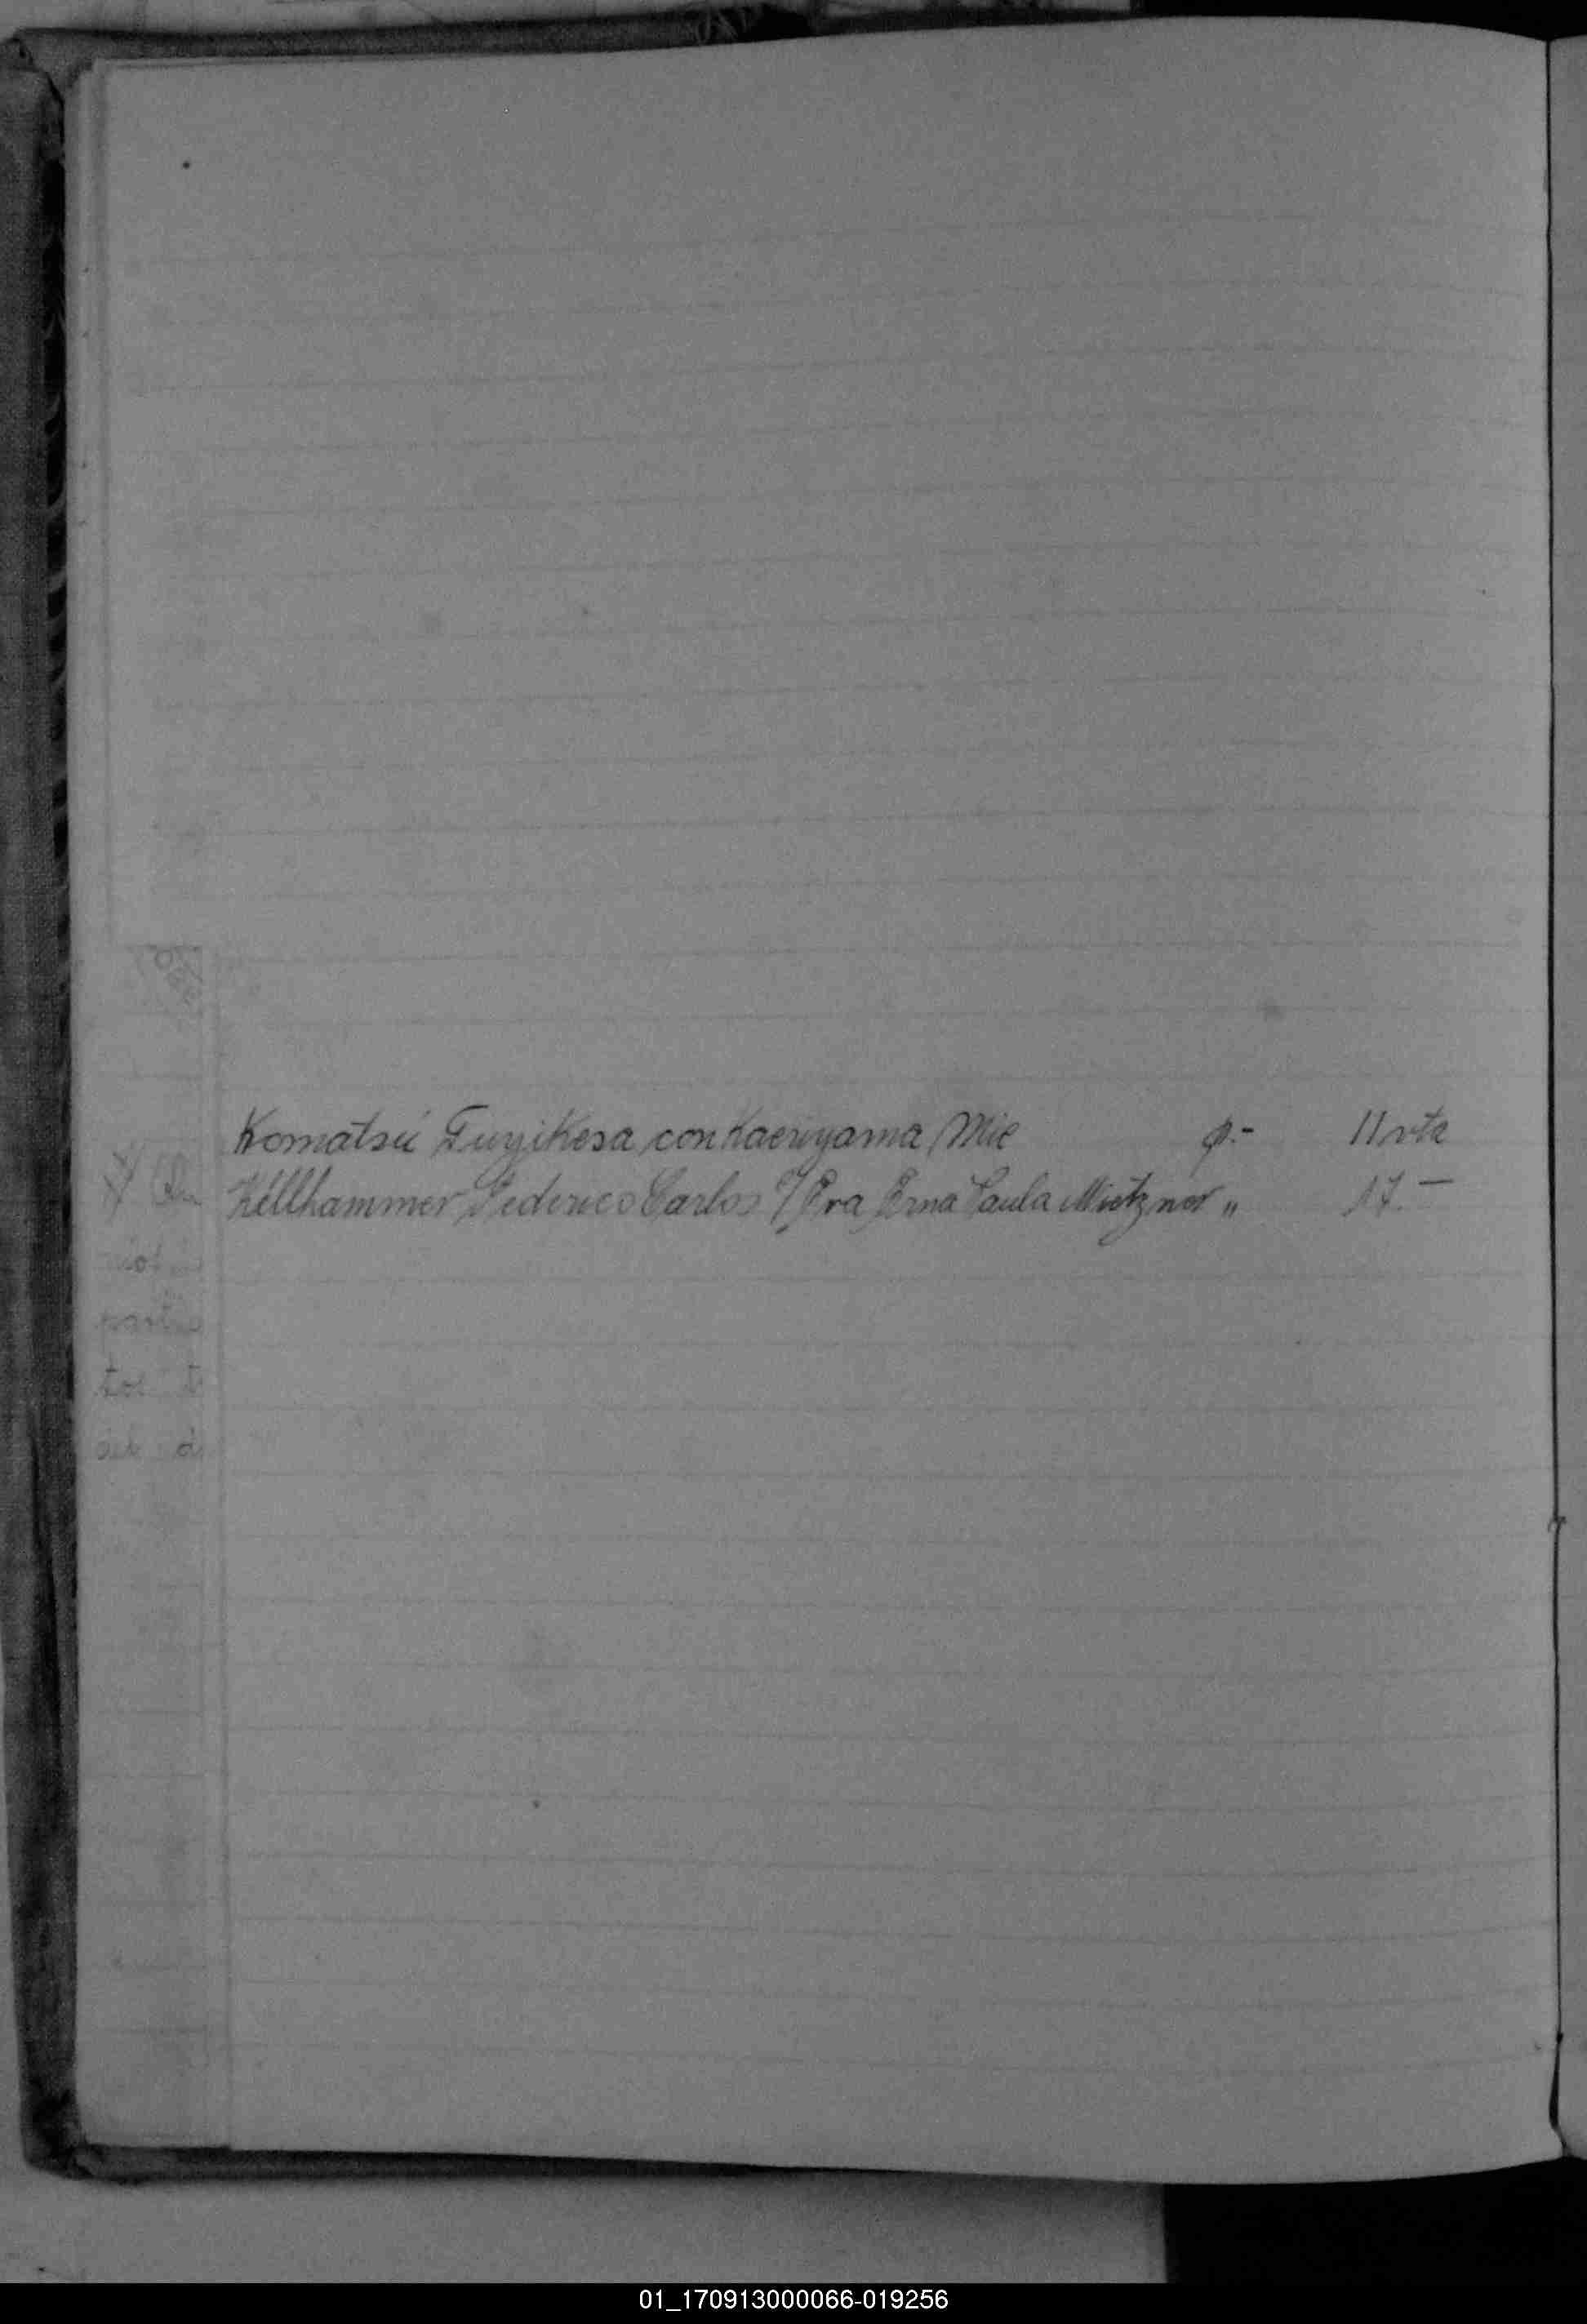 Komatsú Fuyikesa con Kaeriyama, Mie p.- 11 vta
Kéllhammer Federico Carlos c/ Eva Erna Paula Mietzner " 17.-
01_170913000066-019256